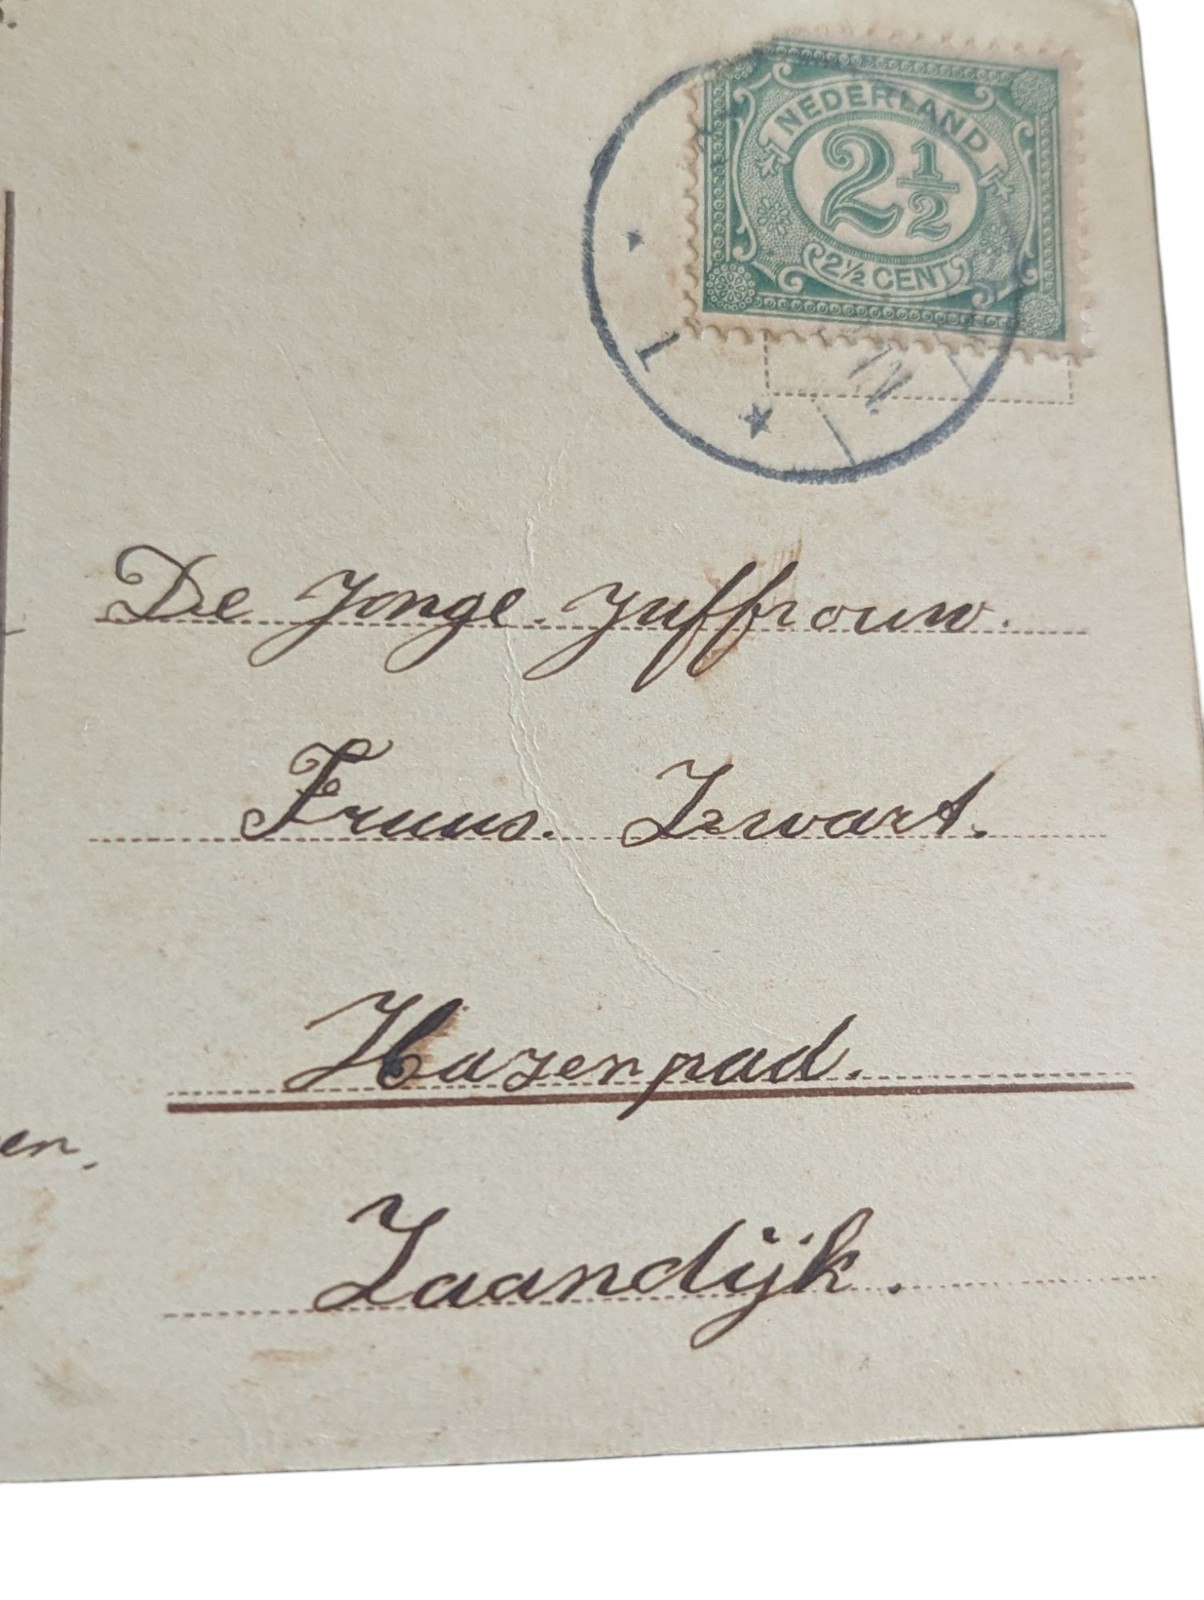 NEDERLAND
2 1/2
2½ CENT
1
De Jonge Juffrouw.
Zwart.
Hazenpad.
en,
Zaandijk.